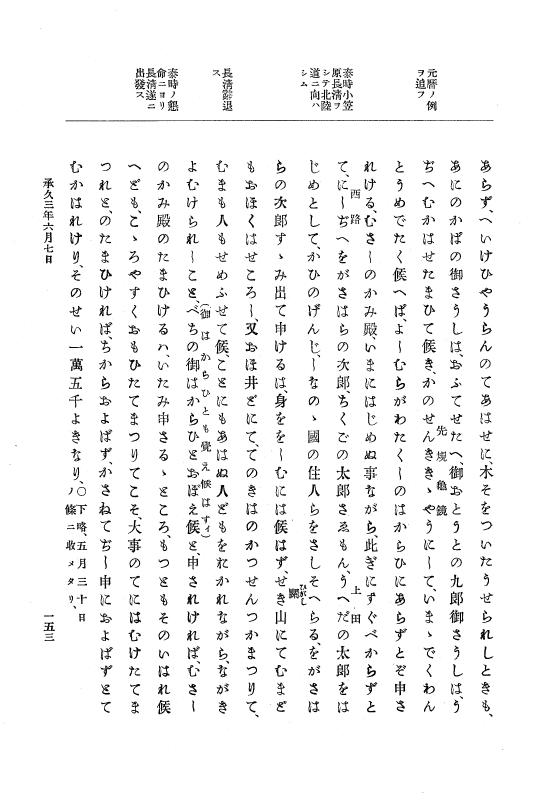 元暦ノ例
ヲ追フ
泰時小笠
原長清ヲ
シテ北陸
道ニ向ハ
シム
長清辭退
ス
泰時ノ懇
命ニヨリ
長清遂ニ
出發ス
あらず、へいけひやうらんのてあはせに、木そをついたうせられしときも、
あにのかばの御さうしは、おふてせたへ、御おとうとの九郎御さうしは、う
ぢへむかはせたまひて候き、かのせんきゝやうにして、いまゝでくわん
先規
龜鏡
とうめでたく候へば、よしむらがわたくしのはからひにあらずとぞ申さ
れける、むさしのかみ殿、いまにはじめぬ事ながら、此ぎにすぐべからずと
て、にしぢへをがさはらの次郎、ちくごの太郎さゑもん、うへだの太郎をは
西路
上田
じめとして、かひのげんじ、しなのゝ國の住人らをさしそへらる、をがさは
らの次郎すゝみ出て申けるは、身ををしむには候はず、せき山にてむまど
もおほくはせころし、又おほ井どにて、てのきはのかつせんつかまつりて、
むまも人もせめふせて候、ことにもあはぬ人どもをおかれながら、ながき
よむけられしこと、べちの御はからひとおぼえ候と、申されければ、むさし
(御はからひとも覺え候はすイ)
のかみ殿のたまひけるハ、いたみ申さるゝところ、もつともそのいはれ候
へども、こゝろやすくおもひたてまつりてこそ、大事のてにはむけたてま
つれと、のたまひければ、ちからおよばず、かさねてぢし申におよばずとて
むかはれけり、そのせい一萬五千よきなり、○下略、五月三十日
ノ條ニ收メタリ、
承久三年六月七日
一五三